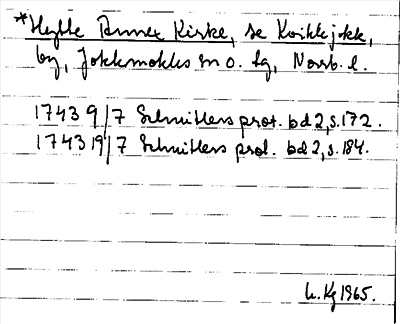 *Hytte Annex Kirke, se Kvikkjokk,
by, Jokkmokks sn o. tg, Norrb. l.
1743 9/7 Schnitlers prot. bd 2, s. 172.
1743 19/7 Schnitlers prot. bd 2, s. 184.
Kg 1965.